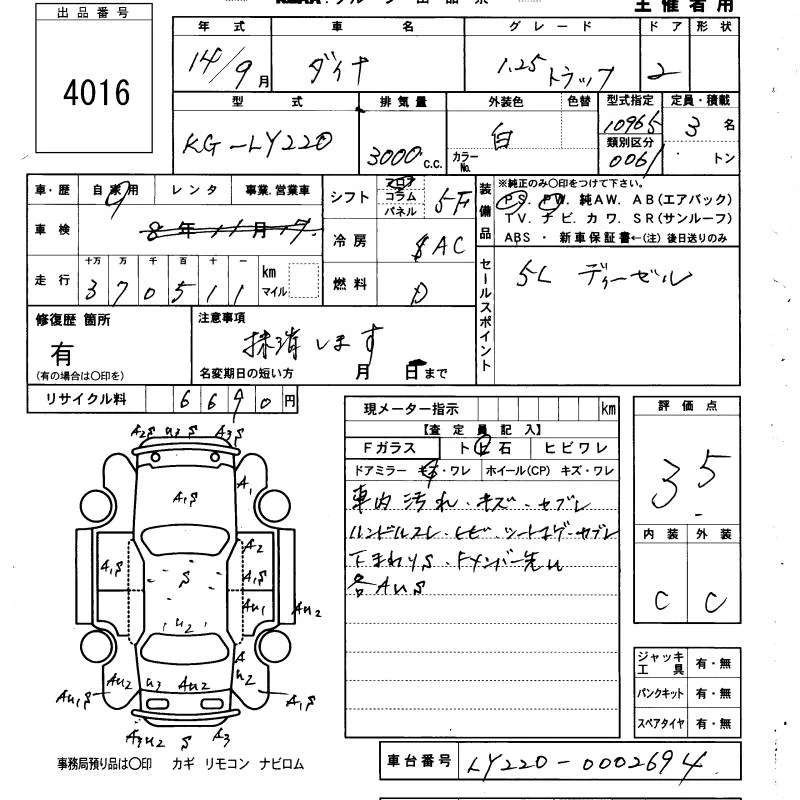 出品番号
4016
主催者用
年式 車名 グレード ドア 形状
14/9月 ダイナ 1.25トラック 2
型式 排気量 外装色 色替 型式指定 定員・積載
KG-LY220 3000c.c. 白 カラーNo. 10965 3名
類別区分
0061 トン
車・歴 自家用 レンタ 事業.営業車
車検 8年11月17
走行 十万 万 千 百 十 一
370511 km マイル
シフト フロア コラム パネル 5F
冷房 AC
燃料 D
装備品
※純正のみ〇印をつけて下さい。
PS. PW. 純AW. AB(エアバック)
TV. ナビ. カワ. SR(サンルーフ)
ABS ・ 新車保証書←(注) 後日送りのみ
セールスポイント
5L ディーゼル
修復歴 箇所
有
(有の場合は〇印を)
注意事項
抹消します
名変期日の短い方 月 日まで
リサイクル料 6690円
現メーター指示 km
【査定員記入】
Fガラス トビ石 ヒビワレ
ドアミラー キズ・ワレ ホイール(CP) キズ・ワレ
車内汚れ・キズ・セブレ
ハンドルスレ・ヒビ・シートコゲ・セブレ
下まわりS・Fメンバー先U
各AUS
評価点
3.5
内装 外装
C C
ジャッキ工具 有・無
パンクキット 有・無
スペアタイヤ 有・無
A2S U3S A3S
A1S A1
A2
A1S S A1S
AU1
AU2
U2
A
AU1S AU2 U3 AU2 U2 A1S
A3U2 S A3
事務局預り品は〇印 カギ リモコン ナビロム
車台番号 LY220-0002694